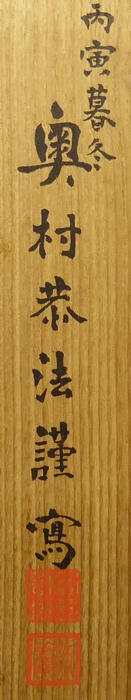 丙寅暮冬
奥村恭法謹寫